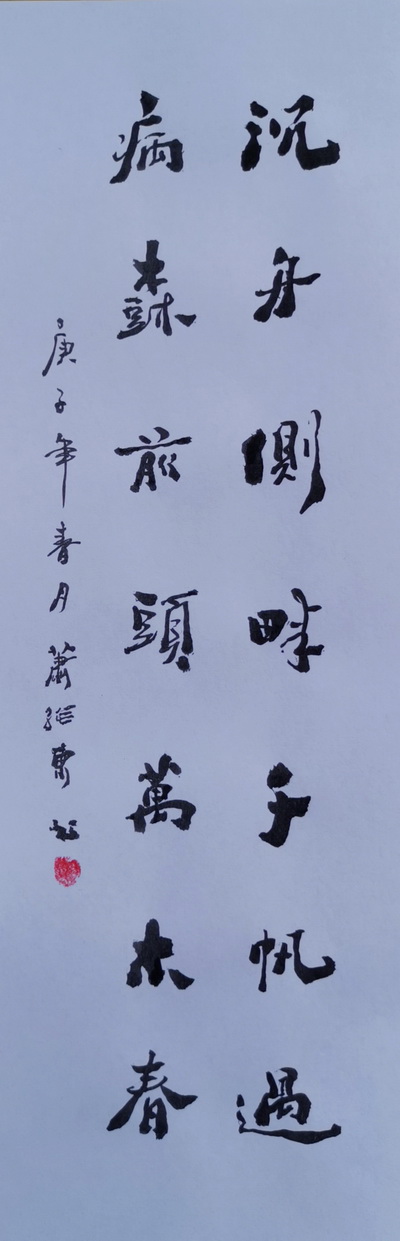 沉舟側畔千帆過
病樹前頭萬木春
庚子年春月蕭維東